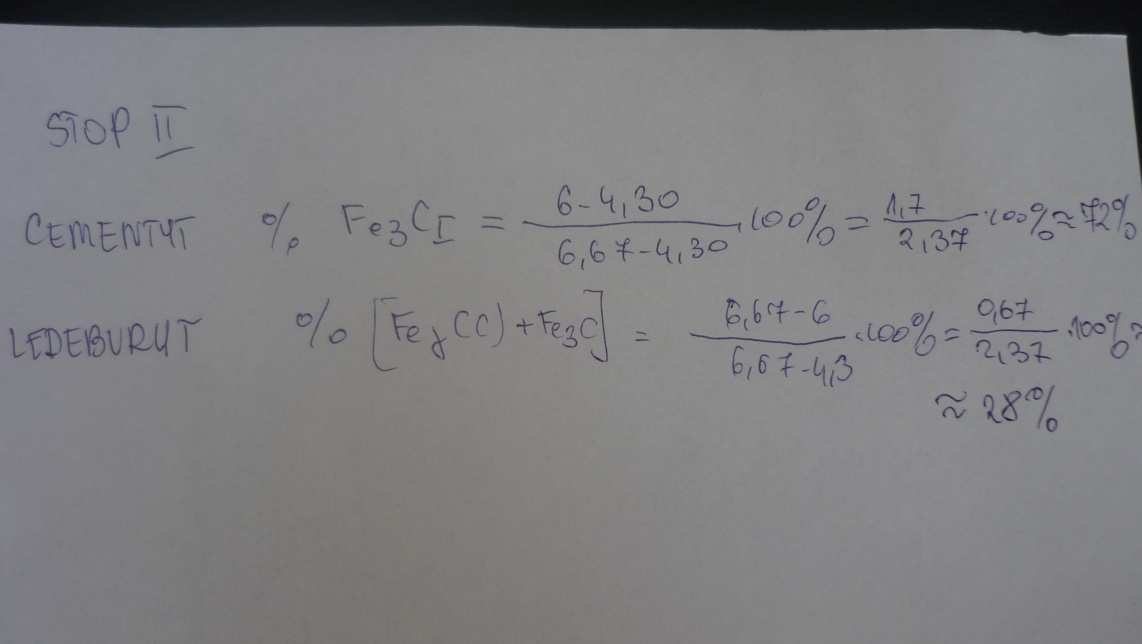 STOP II
CEMENTYT % Fe₃C_I = (6-4,30)/(6,67-4,30) · 100% = 1,7/2,37 · 100% ≈ 72%
LEDEBURYT % [Fe_γ(C) + Fe₃C] = (6,67-6)/(6,67-4,3) · 100% = 0,67/2,37 · 100% ≈
≈ 28%